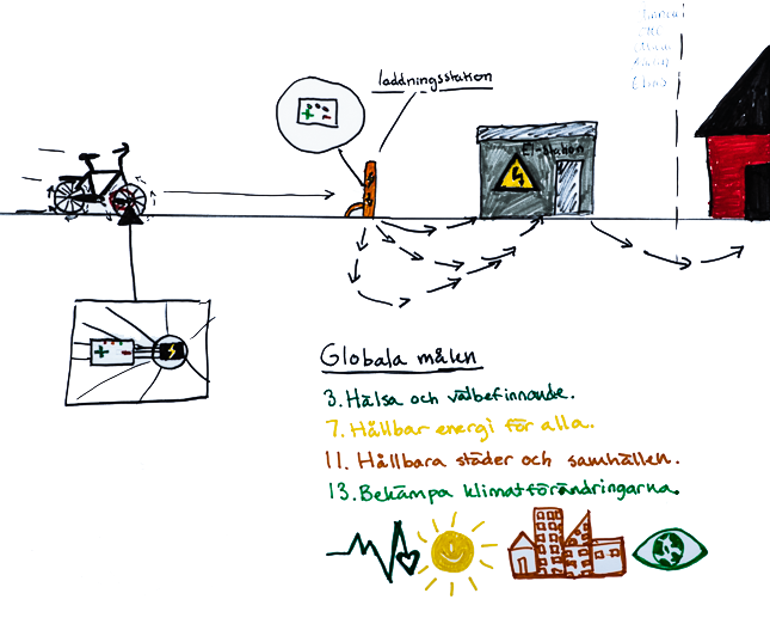 laddningsstation
El-station
Globala målen
3. Hälsa och välbefinnande.
7. Hållbar energi för alla.
11. Hållbara städer och samhällen.
13. Bekämpa klimatförändringarna.